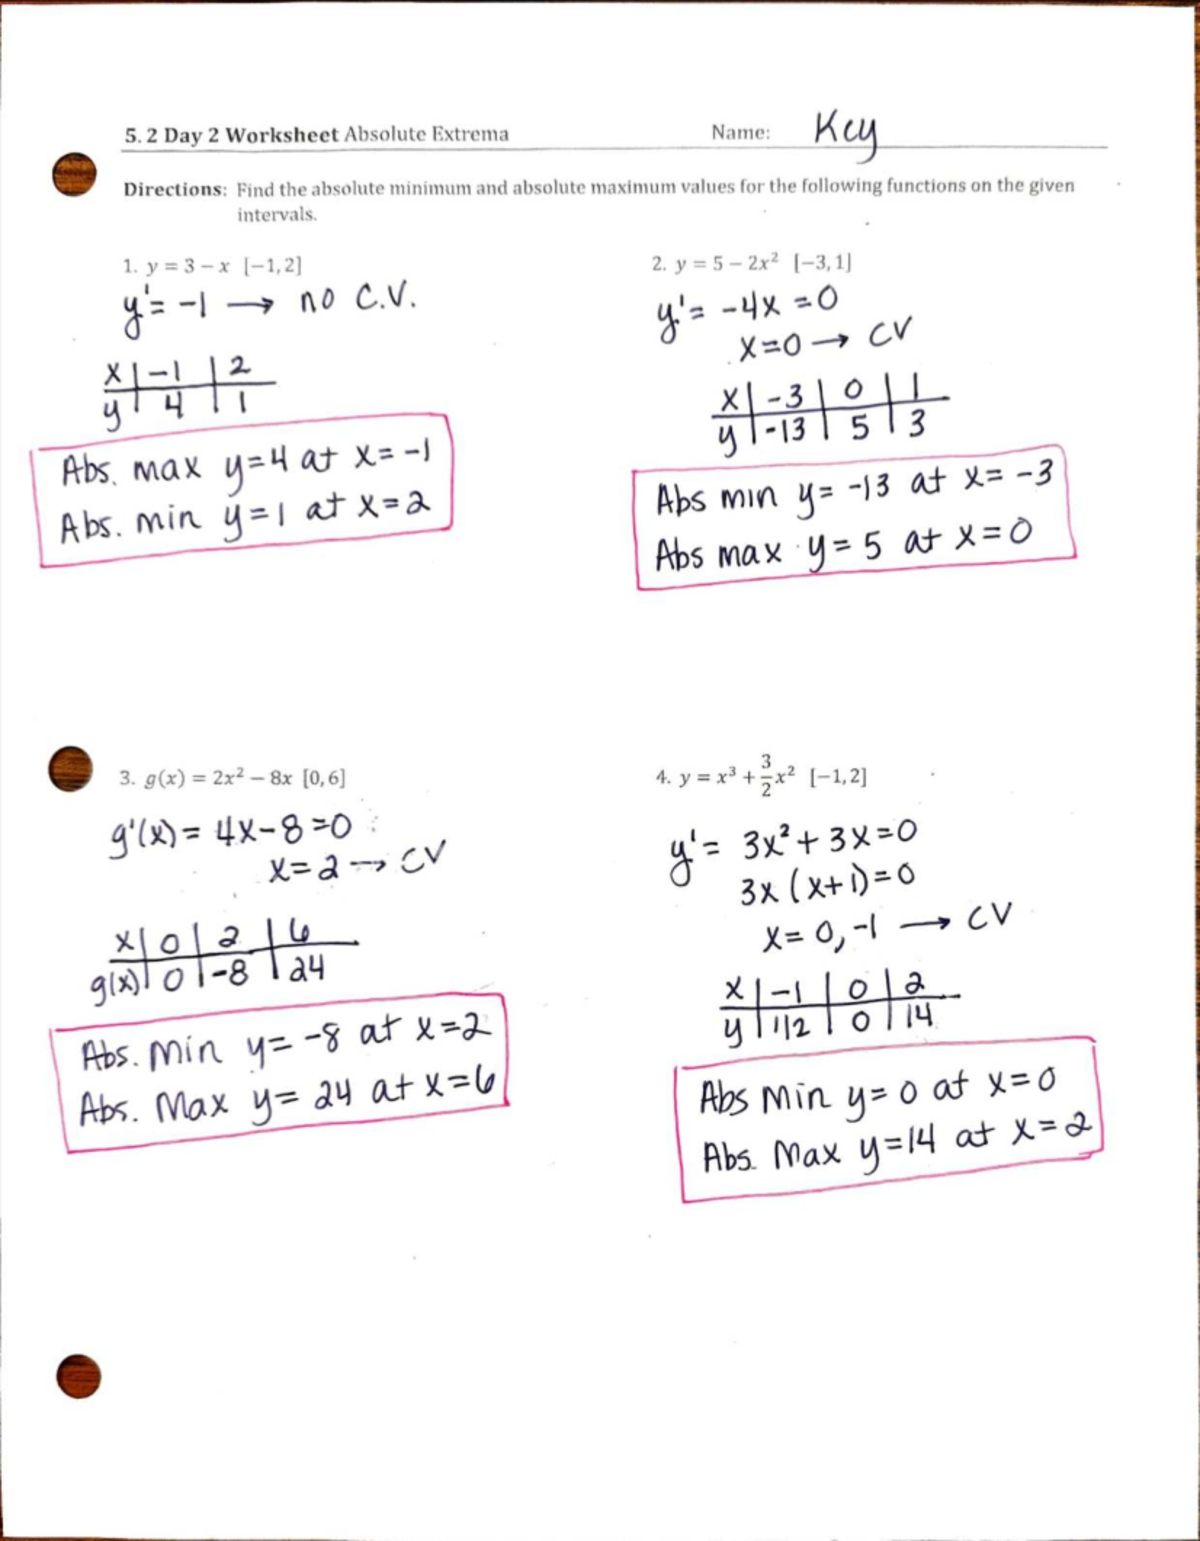 5. 2 Day 2 Worksheet Absolute Extrema Name: Key
Directions: Find the absolute minimum and absolute maximum values for the following functions on the given
intervals.
1. y = 3 – x [−1, 2]
y' = -1 → no C.V.
x | -1 | 2
y | 4 | 1
Abs. max y=4 at x= -1
Abs. min y=1 at x=2
2. y = 5 – 2x² [−3, 1]
y' = -4x = 0
x=0 → CV
x | -3 | 0 | 1
y | -13 | 5 | 3
Abs min y= -13 at x= -3
Abs max y= 5 at x=0
3. g(x) = 2x² – 8x [0, 6]
g'(x) = 4x-8=0
x=2 → CV
x | 0 | 2 | 6
g(x) | 0 | -8 | 24
Abs. Min y= -8 at x=2
Abs. Max y= 24 at x=6
4. y = x³ + 3/2 x² [−1, 2]
y' = 3x² + 3x=0
3x (x+1)=0
x= 0, -1 → CV
x | -1 | 0 | 2
y | 1/2 | 0 | 14
Abs Min y= 0 at x=0
Abs. Max y=14 at x=2